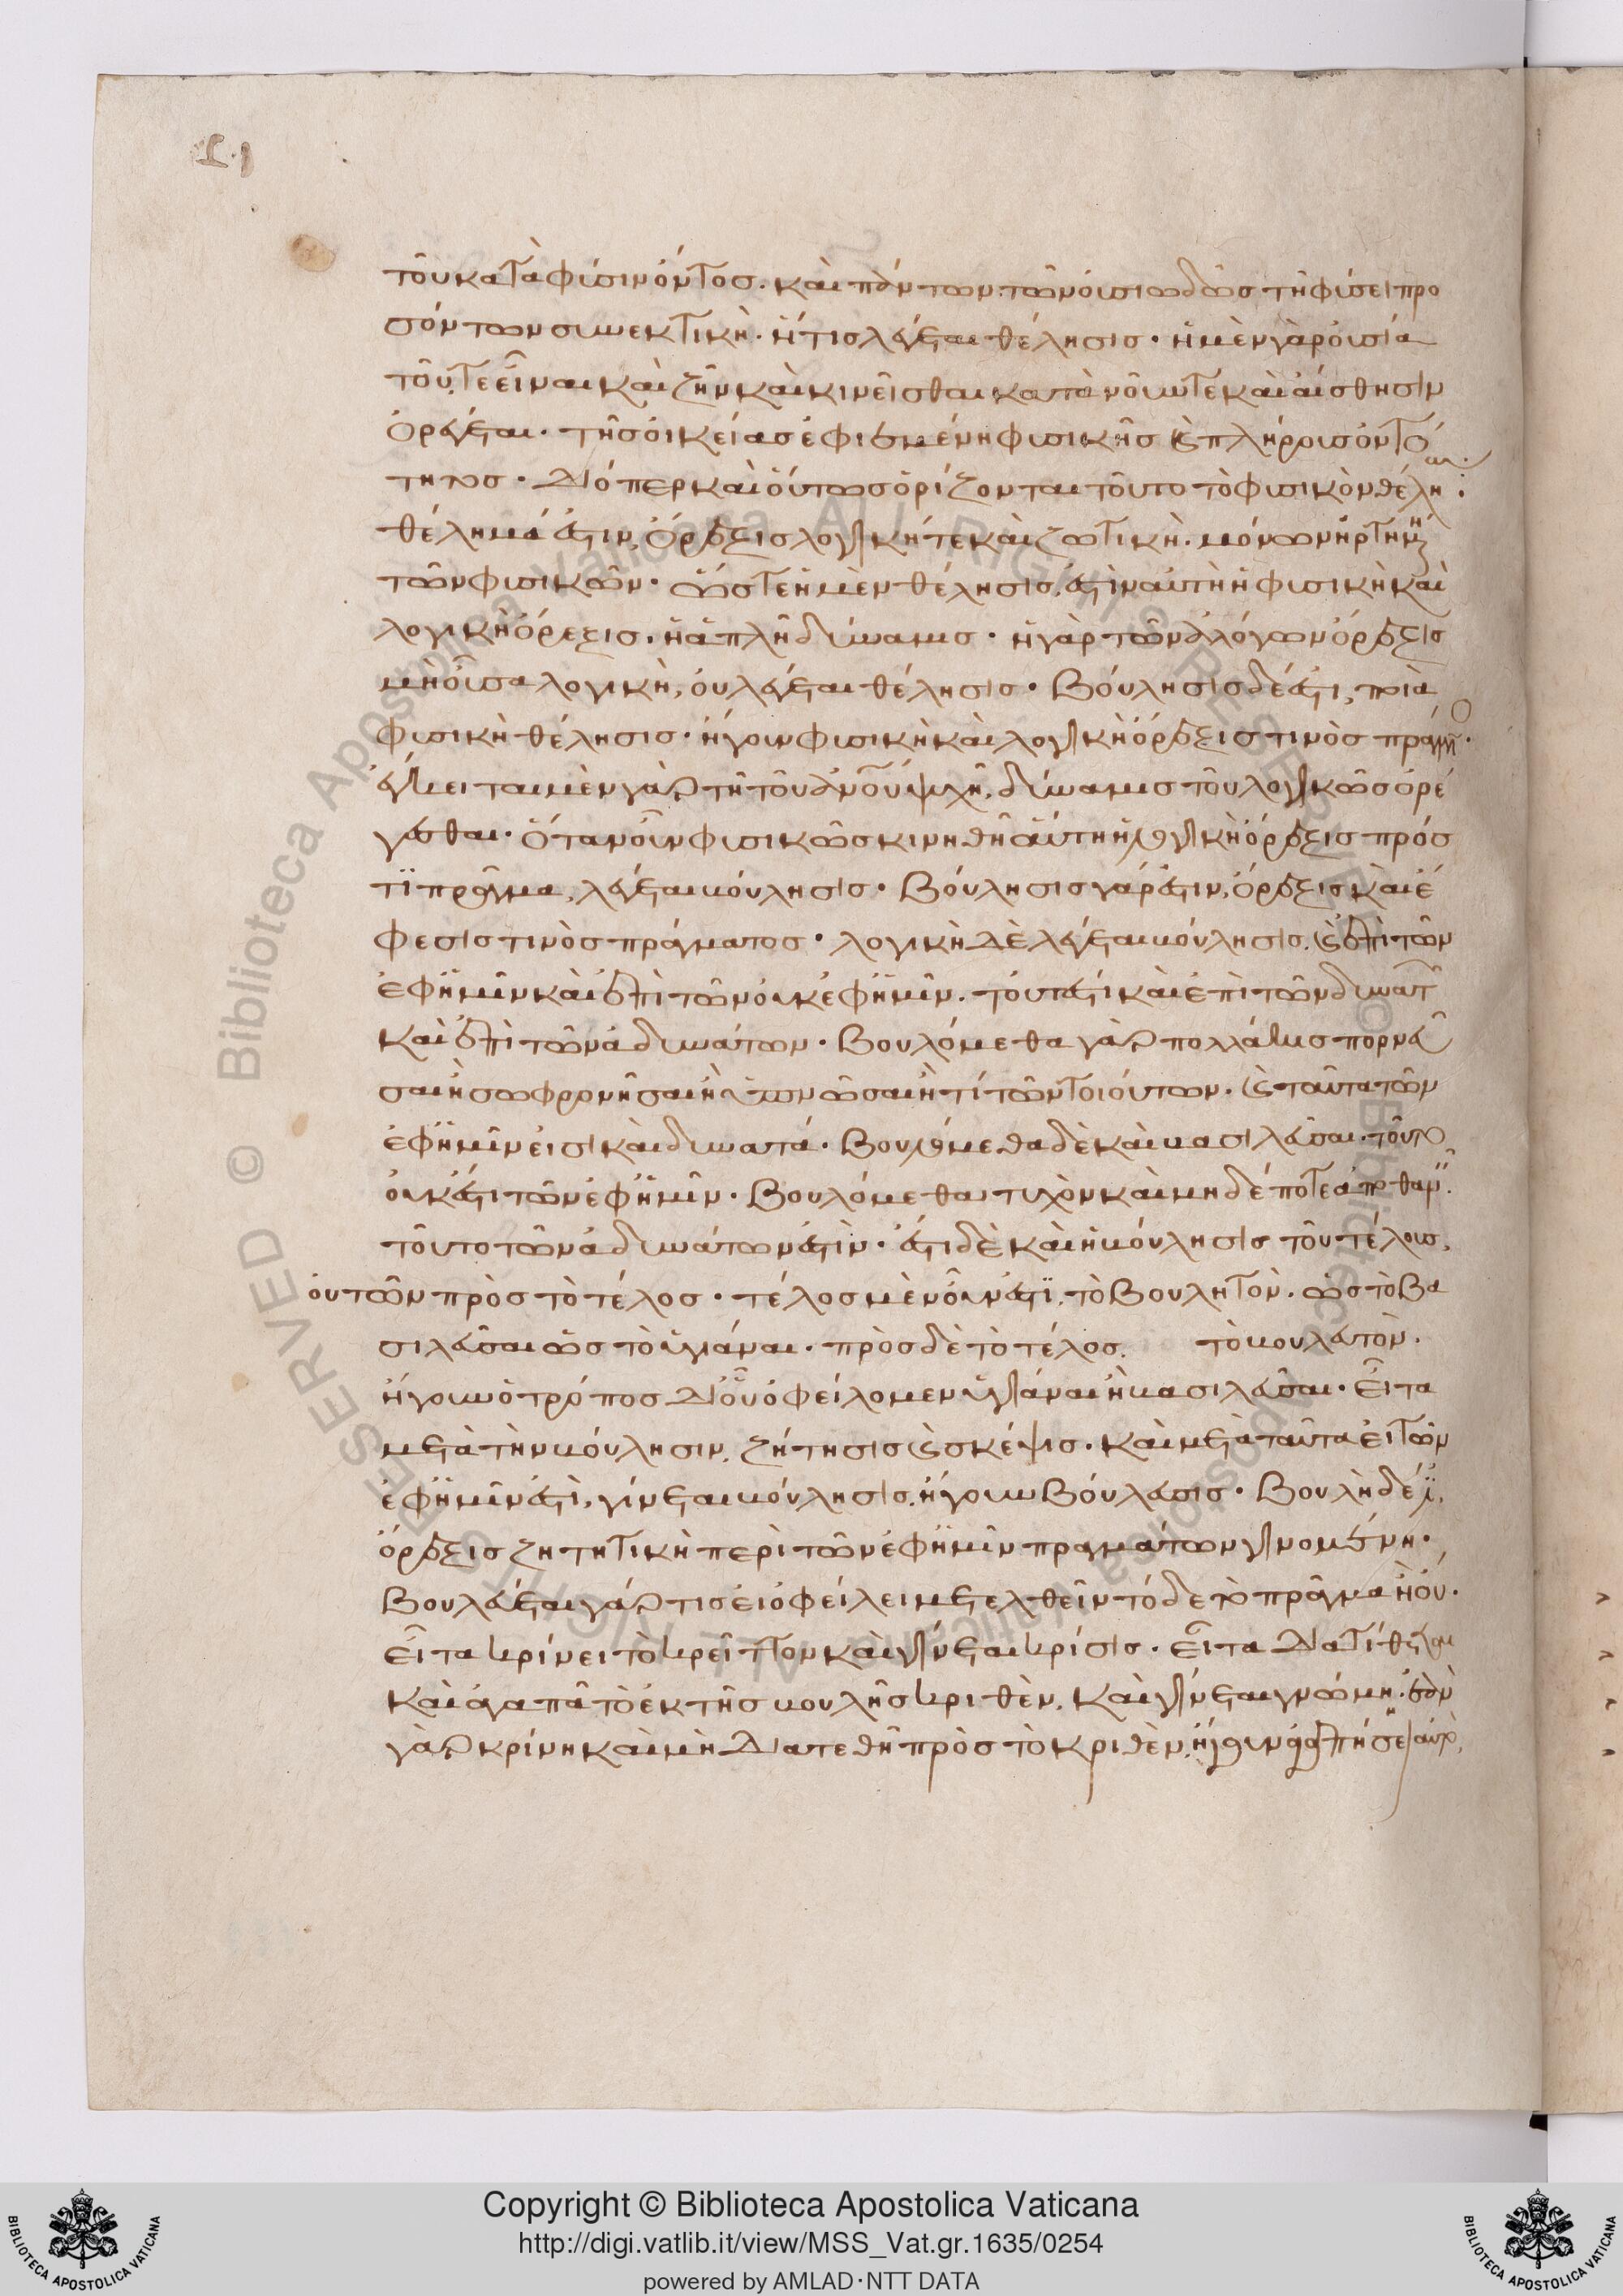 τοῦ κατὰ φύσιν ὄντος. καὶ πάντων τῶν οὐσιωδῶς τῆ φύσει προ
σόντων συνεκτικὴ. ἥτις λέγεται θέλησις. ἡ μὲν γὰρ οὐσία
τοῦ τε εἶναι καὶ ζῆν καὶ κινεῖσθαι κατὰ νοῦν τε καὶ αἴσθησιν
ὀρέγεται. τῆς οἰκείας ἐφιεμένη φυσικῆς καὶ πλήρους ὀντό
τητος. διόπερ καὶ οὕτως ὁρίζονται τοῦτο τὸ φυσικὸν θέλημα.
θέλημά ἐστιν, ὄρεξις λογική τε καὶ ζωτικὴ. μόνων ἠρτημένη
τῶν φυσικῶν. ὥστε ἡ μὲν θέλησις, ἐστὶν αὐτὴ ἡ φυσικὴ καὶ
λογικὴ ὄρεξις. ἡ ἁπλῆ δύναμις. ἡ γὰρ τῶν ἀλόγων ὄρεξις
μὴ οὖσα λογικὴ, οὐ λέγεται θέλησις. Βούλησις δέ ἐστι, ποιὰ
φυσικὴ θέλησις. ἤγουν φυσικὴ καὶ λογικὴ ὄρεξις τινὸς πράγματος.
ἔγκειται μὲν γὰρ τῆ τοῦ ἀνου ψυχῆ, δύναμις τοῦ λογικῶς ὀρέ
γεσθαι. ὅταν οὖν φυσικῶς κινηθῆ αὕτη ἡ λογικὴ ὄρεξις πρός
τι πρᾶγμα, λέγεται βούλησις. Βούλησις γάρ ἐστιν, ὄρεξις καὶ ἔ
φεσις τινὸς πράγματος. λογικὴ δὲ λέγεται βούλησις. καὶ ἐπὶ τῶν
ἐφ ἡμῖν καὶ ἐπὶ τῶν οὐκ ἐφ ἡμῖν. τουτέστι καὶ ἐπὶ τῶν δυνατῶν
καὶ ἐπὶ τῶν ἀδυνάτων. Βουλόμεθα γὰρ πολλάκις πορνεῦ
σαι ἢ σωφρονῆσαι ἢ ὑπνῶσαι ἤ τι τῶν τοιούτων. καὶ ταῦτα τῶν
ἐφ ἡμῖν εἰσι καὶ δυνατά. Βουλόμεθα δὲ καὶ βασιλεῦσαι. τοῦτο
οὐκ ἔστι τῶν ἐφ ἡμῖν. Βουλόμεθα τυχὸν καὶ μηδέποτε ἀποθανεῖν.
τοῦτο τῶν ἀδυνάτων ἐστὶν. ἔστι δὲ καὶ ἡ βούλησις τοῦ τέλους,
οὐ τῶν πρὸς τὸ τέλος. τέλος μὲν οὖν ἐστὶ, τὸ βουλητὸν. ὡς τὸ βα
σιλεῦσαι ὡς τὸ ὑγιάναι. πρὸς δὲ τὸ τέλος. τὸ βουλευτὸν.
ἤγουν ὁ τρόπος δι οὗ ὀφείλομεν ὑγιάναι ἢ βασιλεῦσαι. εἶτα
μετὰ τὴν βούλησιν, ζήτησις καὶ σκέψις. καὶ μετὰ ταῦτα εἰ τῶν
ἐφ ἡμῖν ἐστὶ, γίνεται βούλησις, ἤγουν βούλευσις. Βουλὴ δέ ἐστι,
ὄρεξις ζητητικὴ περὶ τῶν ἐφ ἡμῖν πραγμάτων γινομένη.
Βουλεύεται γὰρ τις εἰ ὀφείλει μετελθεῖν τόδε τὸ πρᾶγμα ἢ οὔ.
εἶτα κρίνει τὸ κρεῖττον καὶ γίνεται κρίσις. εἶτα διατίθεται
καὶ ἀγαπᾶ τὸ ἐκ τῆς βουλῆς κριθὲν, καὶ γίνεται γνώμη. ἐὰν
γὰρ κρίνη καὶ μὴ διατεθῆ πρὸς τὸ κριθὲν, ἤγουν ἀγαπήσει αὐτὸ,